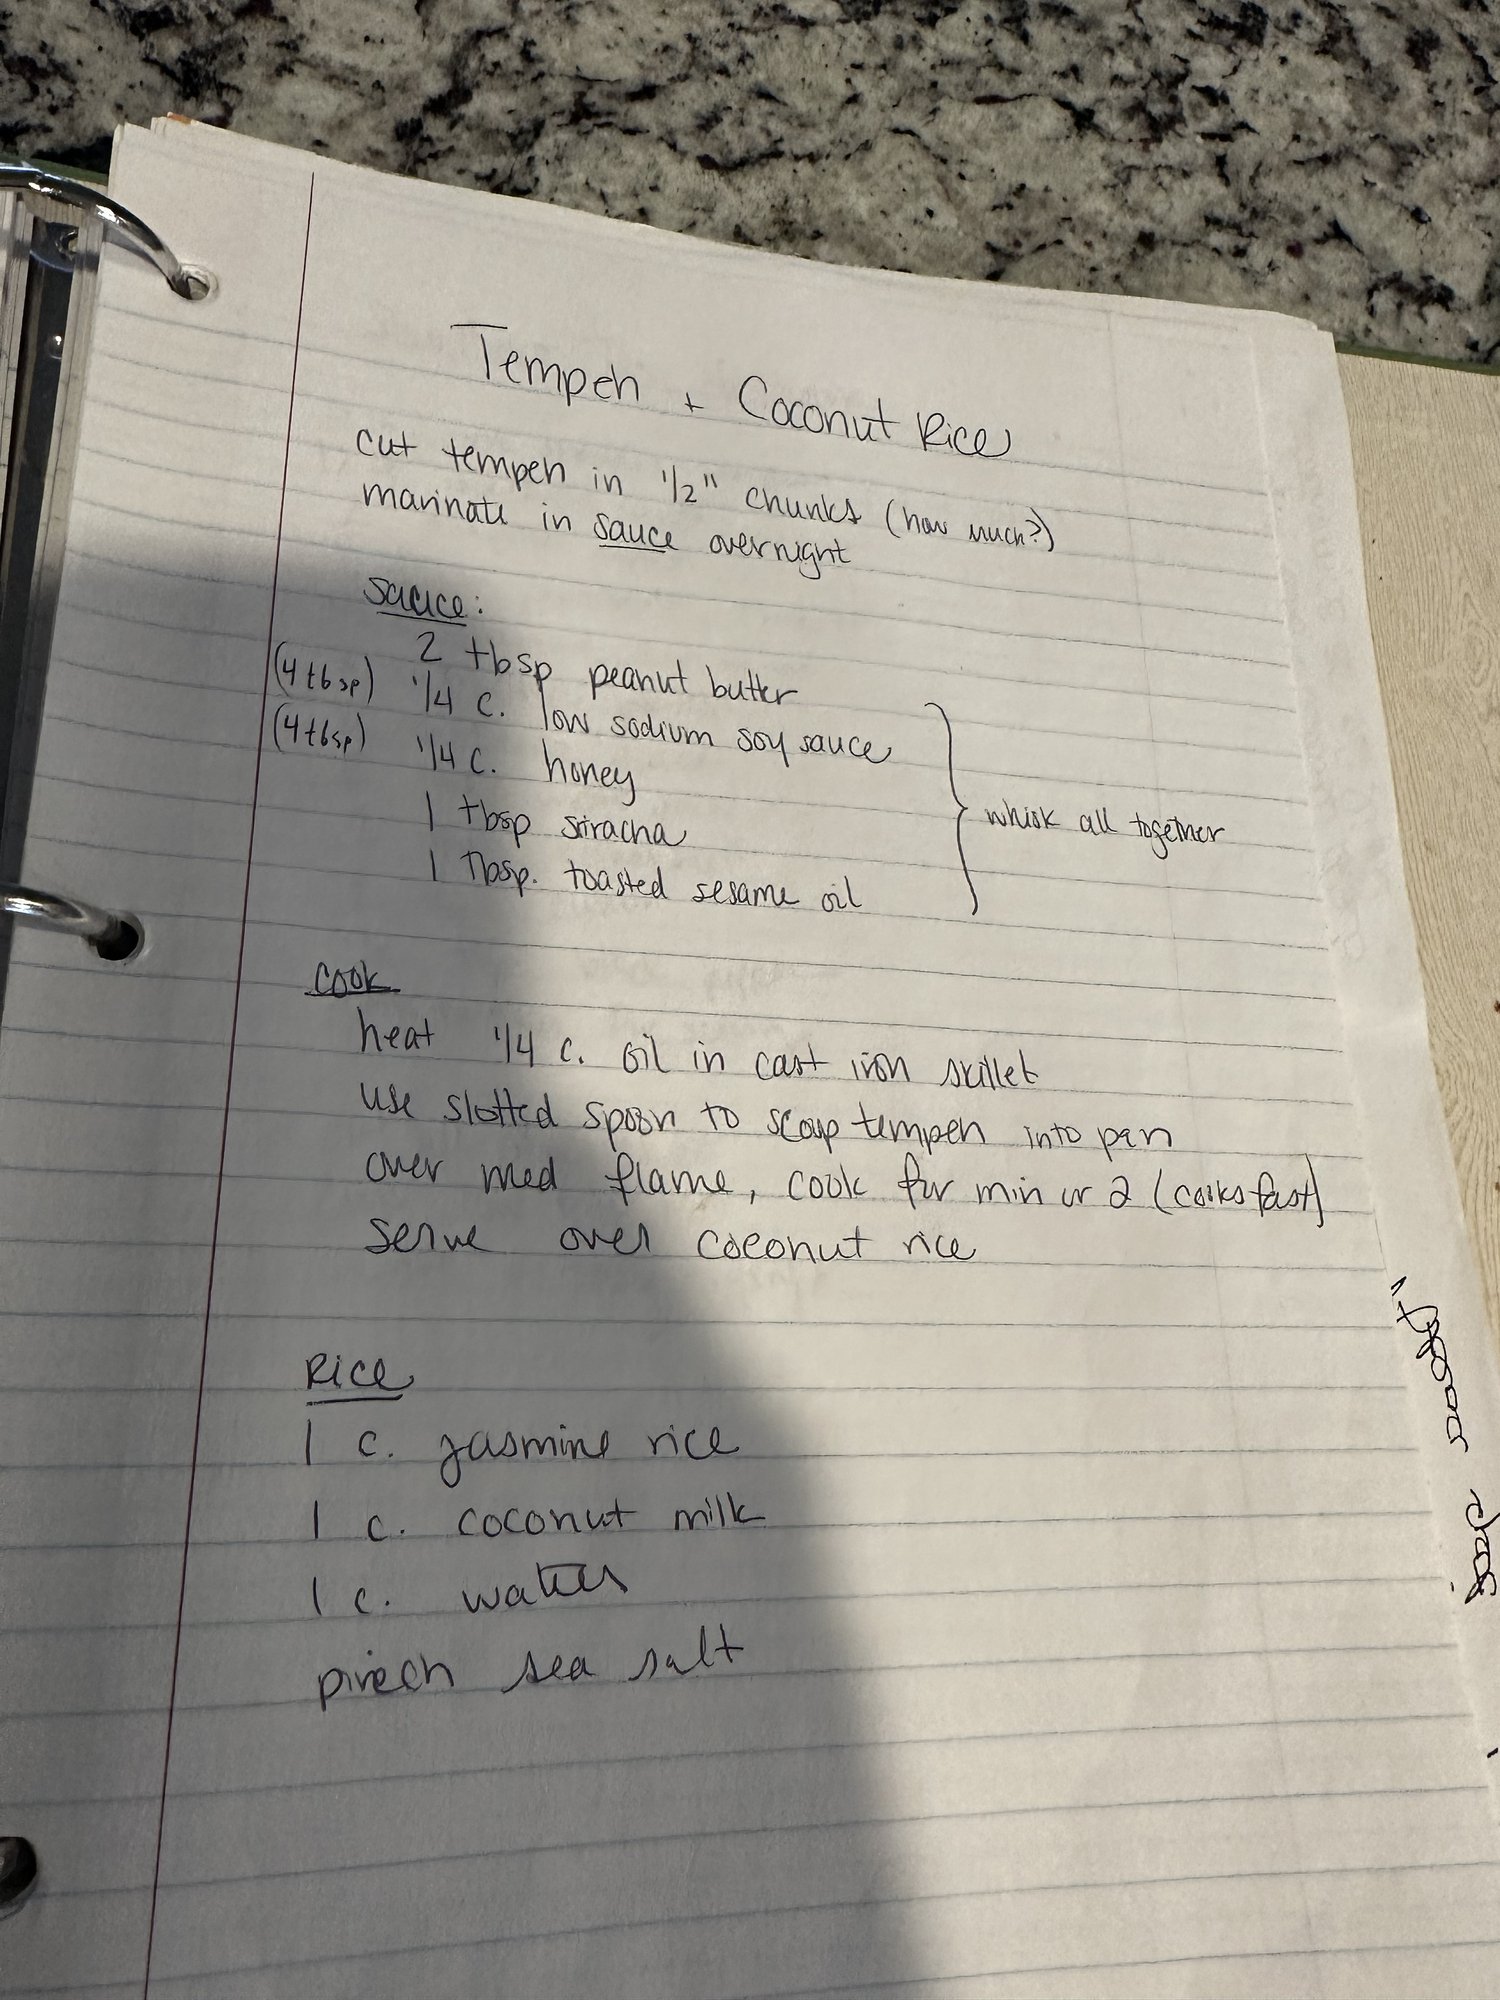 Tempeh + Coconut Rice
cut tempeh in 1/2" chunks (how much?)
marinate in sauce overnight
sauce:
2 tbsp peanut butter
(4 tbsp) 1/4 c. low sodium soy sauce
(4 tbsp) 1/4 c. honey
1 tbsp sriracha
1 Tbsp. toasted sesame oil
whisk all together
cook
heat 1/4 c. oil in cast iron skillet
use slotted spoon to scoop tempeh into pan
over med flame, cook for min or 2 (cooks fast)
serve over coconut rice
Rice
1 c. jasmine rice
1 c. coconut milk
1 c. water
pinch sea salt